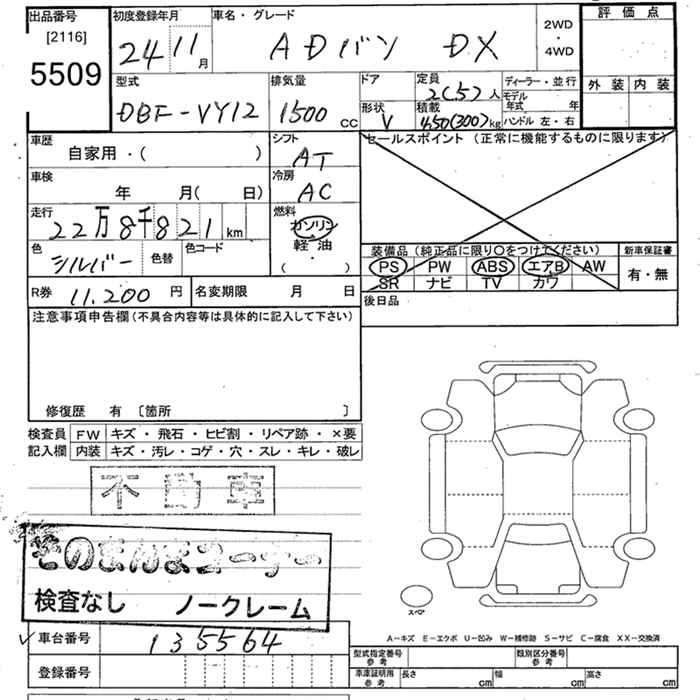 出品番号 初度登録年月 車名・グレード 2WD ・ 4WD 評価点
[2116] 24 11月 ADバン DX
5509
型式 排気量 ドア 定員 2(5)人 ディーラー・並行 外装 内装
DBF-VY12 1500 CC 形状 V 積載 450(300)kg モデル年式 年 ハンドル 左・右
車歴 シフト セールスポイント(正常に機能するものに限ります)
自家用・( ) AT
車検 冷房
年 月( 日) AC
走行 燃料
22万8千821 km ガソリン
軽油
( ・ )
色 シルバー 色替 色コード
装備品(純正品に限り○をつけてください) 新車保証書
PS PW ABS エアB AW 有・無
SR ナビ TV カワ
R券 11,200 円 名変期限 月 日 後日品
注意事項申告欄(不具合内容等は具体的に記入して下さい)
修復歴 有 〔箇所 〕
検査員 FW キズ・飛石・ヒビ割・リペア跡・×要
記入欄 内装 キズ・汚レ・コゲ・穴・スレ・キレ・破レ
不動車
そのまんまコーナー
検査なし ノークレーム
スペア
A−キズ E−エクボ U−凹み W−補修跡 S−サビ C−腐食 XX−交換済
車台番号 135564
登録番号
型式指定番号 参考 類別区分番号 参考
車庫証明用 参考 長さ cm 幅 cm 高さ cm